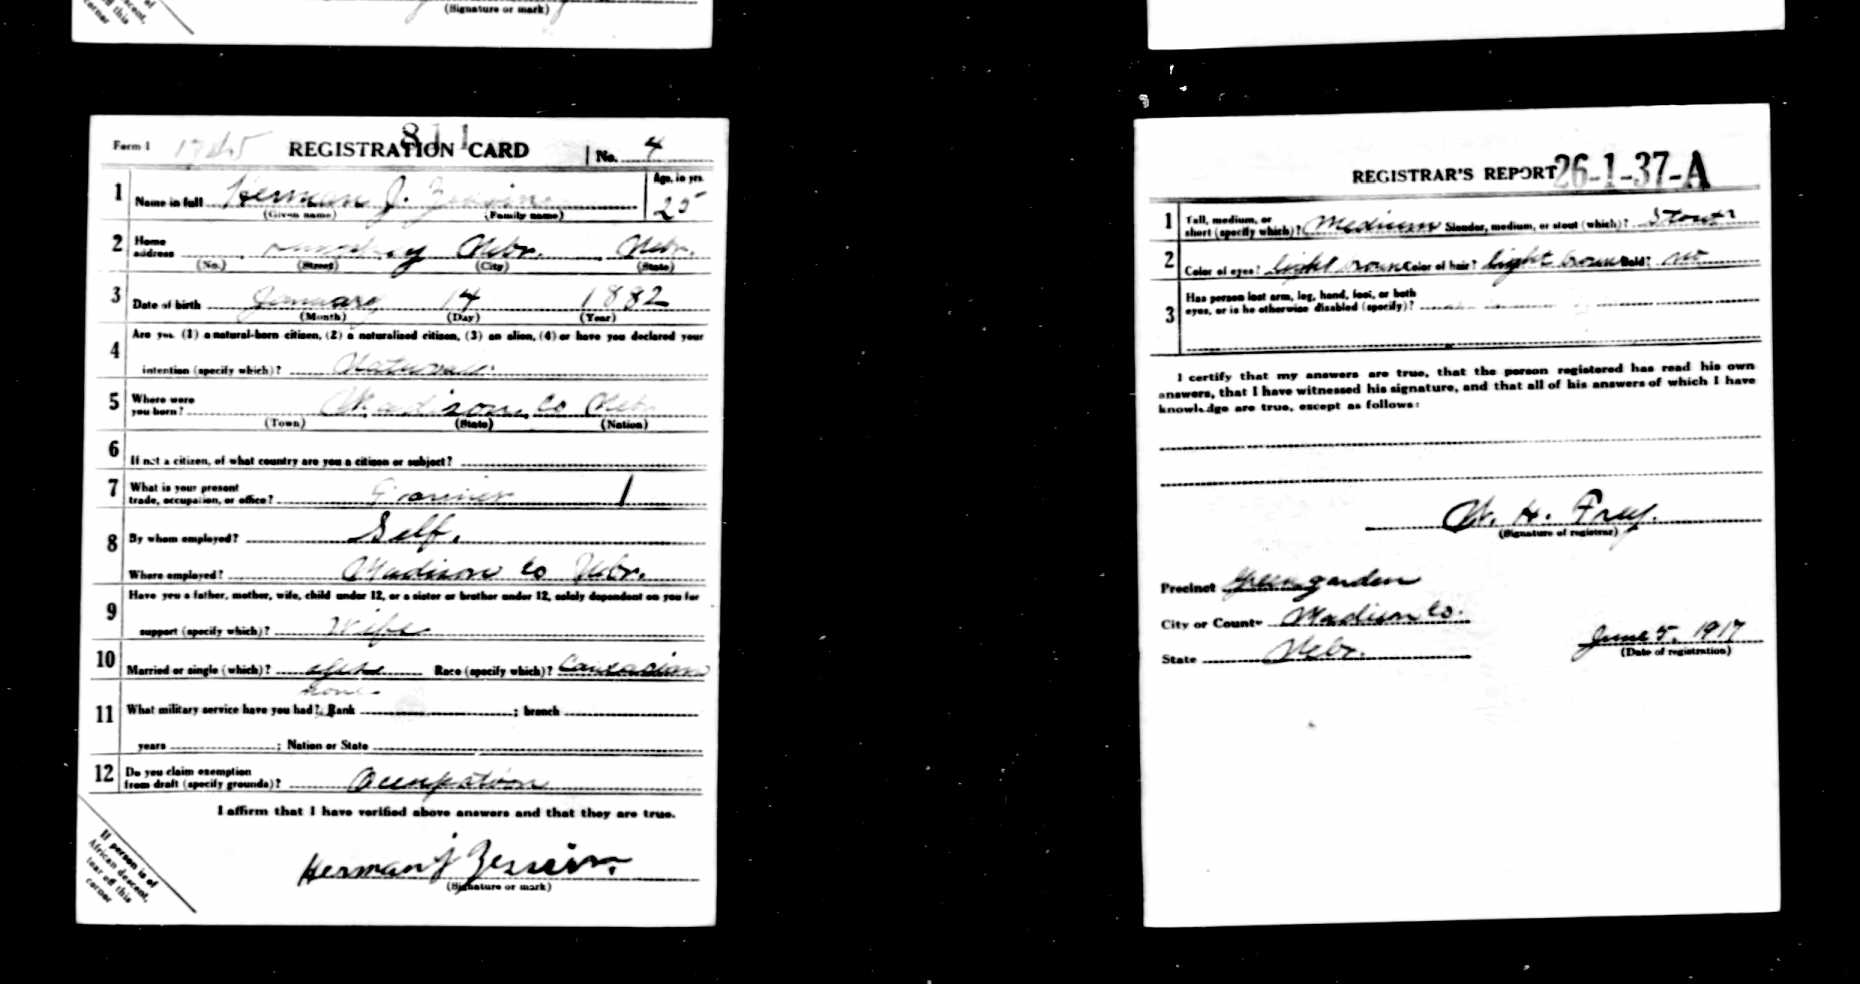 (Signature or mark)
of
descent,
off this
corner
811
Form 1 1745 REGISTRATION CARD No. 4
1 Name in full Herman J. Age, in yrs.
(Given name) (Family name) 25
2 Home address Nebr. Nebr.
(No.) (Street) (City) (State)
3 Date of birth January 14 1882
(Month) (Day) (Year)
4 Are you (1) a natural-born citizen, (2) a naturalized citizen, (3) an alien, (4) or have you declared your
intention (specify which)?
5 Where were you born? Madison Co Nebr
(Town) (State) (Nation)
6 If not a citizen, of what country are you a citizen or subject?
7 What is your present
trade, occupation, or office? Farmer
8 By whom employed? Self.
Where employed? Madison Co Nebr.
9 Have you a father, mother, wife, child under 12, or a sister or brother under 12, solely dependent on you for
support (specify which)? Wife
10 Married or single (which)? Race (specify which)? Caucasian
none
11 What military service have you had? Rank ; branch
years ; Nation or State
12 Do you claim exemption
from draft (specify grounds)? Occupation
I affirm that I have verified above answers and that they are true.
Herman J
(Signature or mark)
If person is of
African descent,
tear off this
corner
REGISTRAR'S REPORT 26-1-37-A
1 Tall, medium, or
short (specify which)? Medium Slender, medium, or stout (which)? Stout
2 Color of eyes? light brown Color of hair? light brown Bald? no
3 Has person lost arm, leg, hand, foot, or both
eyes, or is he otherwise disabled (specify)?
I certify that my answers are true, that the person registered has read his own
answers, that I have witnessed his signature, and that all of his answers of which I have
knowledge are true, except as follows:
W. H. Frey.
(Signature of registrar)
Precinct Green garden
City or County Madison Co.
State Nebr.
June 5, 1917
(Date of registration)